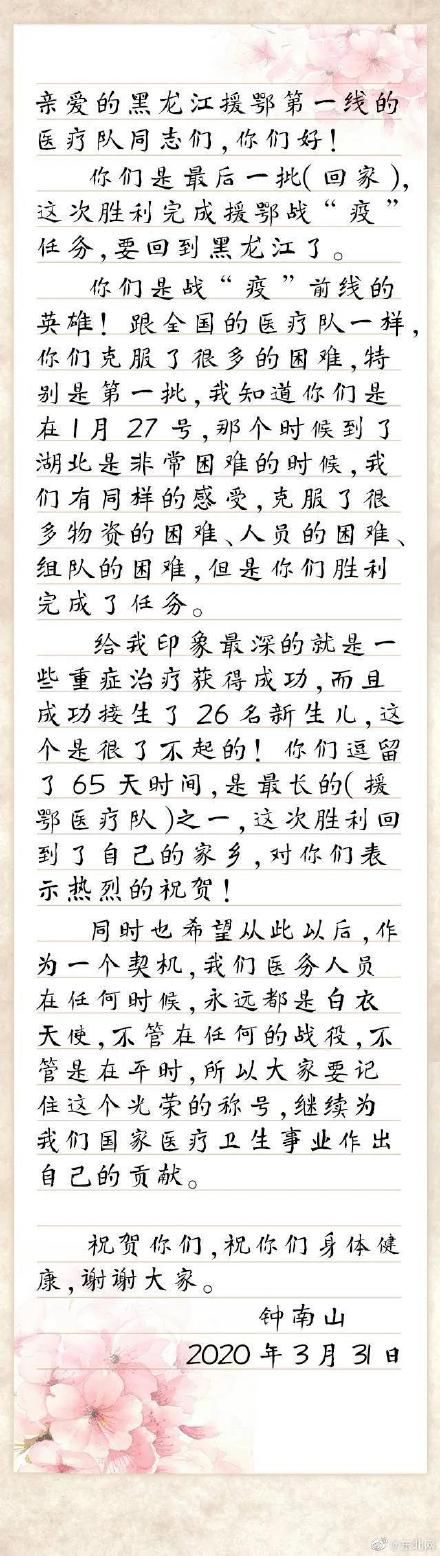 亲爱的黑龙江援鄂第一线的
医疗队同志们,你们好!
你们是最后一批(回家),
这次胜利完成援鄂战“疫”
任务,要回到黑龙江了。
你们是战“疫”前线的
英雄!跟全国的医疗队一样,
你们克服了很多的困难,特
别是第一批,我知道你们是
在1月27号,那个时候到了
湖北是非常困难的时候,我
们有同样的感受,克服了很
多物资的困难、人员的困难、
组队的困难,但是你们胜利
完成了任务。
给我印象最深的就是一
些重症治疗获得成功,而且
成功接生了26名新生儿,这
个是很了不起的!你们逗留
了65天时间,是最长的(援
鄂医疗队)之一,这次胜利回
到了自己的家乡,对你们表
示热烈的祝贺!
同时也希望从此以后,作
为一个契机,我们医务人员
在任何时候,永远都是白衣
天使,不管在任何的战役,不
管是在平时,所以大家要记
住这个光荣的称号,继续为
我们国家医疗卫生事业作出
自己的贡献。
祝贺你们,祝你们身体健
康,谢谢大家。
钟南山
2020年3月31日
@东北网